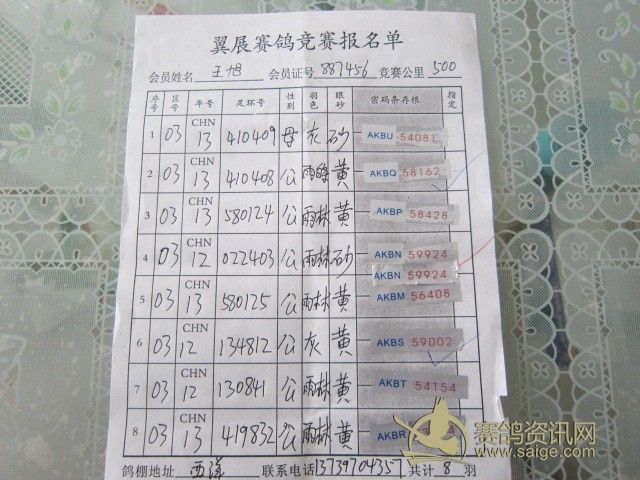 翼展赛鸽竞赛报名单
会员姓名 王旭 会员证号 887456 竞赛公里 500
序号 区号 年号 足环号 性别 羽色 眼砂 密码条存根 指定
1 03 CHN 13 410409 母 灰 砂 AKBU 54081
2 03 CHN 13 410408 公 雨 黄 AKBQ 58162
3 03 CHN 13 580124 公 雨林 黄 AKBP 58428
4 03 CHN 12 022403 公 雨林 砂 AKBN 59924
AKBN 59924
5 03 CHN 13 580125 公 雨林 黄 AKBM 56408
6 03 CHN 12 134812 公 灰 黄 AKBS 59002
7 03 CHN 12 130841 公 雨林 黄 AKBT 54154
8 03 CHN 13 419832 公 雨林 黄 AKBR
鸽棚地址 西洋 联系电话 13739704357 共计 8 羽
赛鸽资讯网
www.saige.com